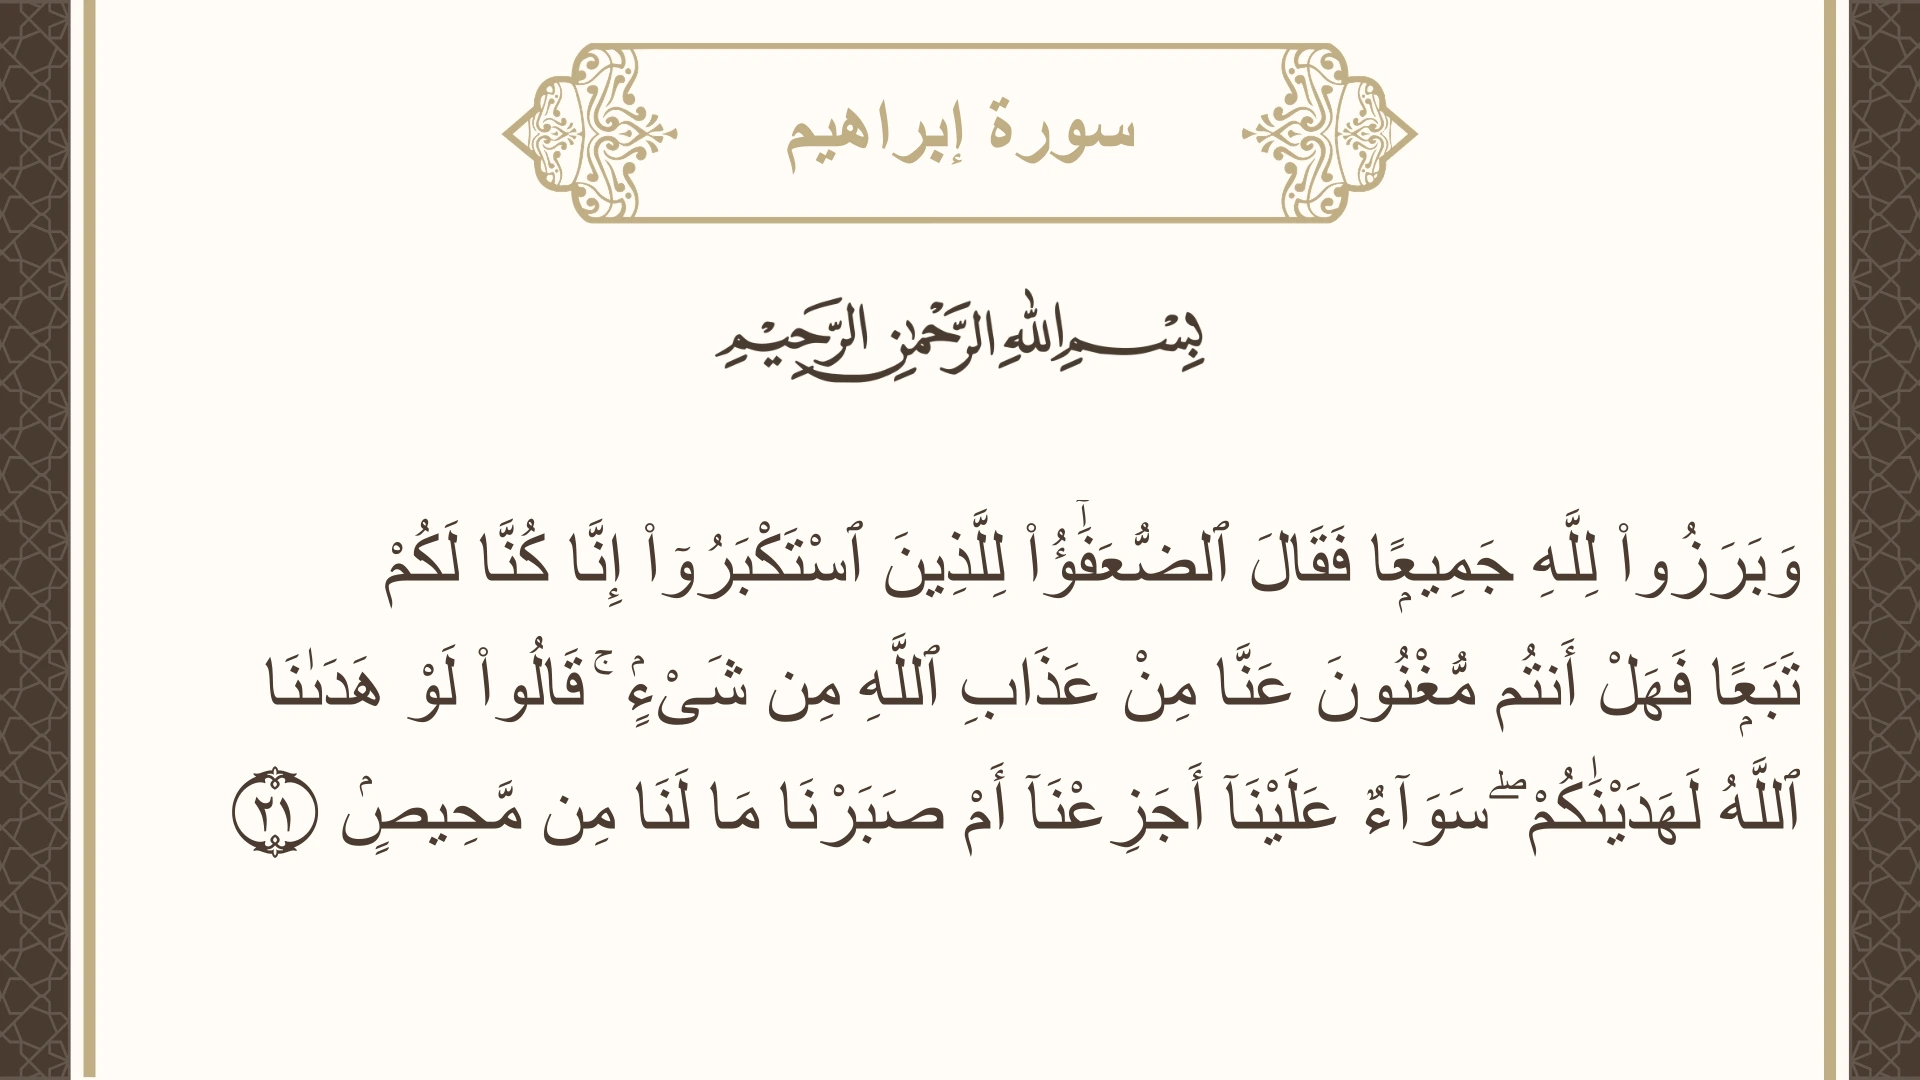 سورة إبراهيم
بِسْمِ اللهِ الرَّحْمٰنِ الرَّحِيْمِ
وَبَرَزُوا۟ لِلَّهِ جَمِيعًۭا فَقَالَ ٱلضُّعَفَـٰٓؤُا۟ لِلَّذِينَ ٱسْتَكْبَرُوٓا۟ إِنَّا كُنَّا لَكُمْ
تَبَعًۭا فَهَلْ أَنتُم مُّغْنُونَ عَنَّا مِنْ عَذَابِ ٱللَّهِ مِن شَىْءٍۢ ۚ قَالُوا۟ لَوْ هَدَىٰنَا
ٱللَّهُ لَهَدَيْنَـٰكُمْ ۖ سَوَآءٌ عَلَيْنَآ أَجَزِعْنَآ أَمْ صَبَرْنَا مَا لَنَا مِن مَّحِيصٍۢ ٢١